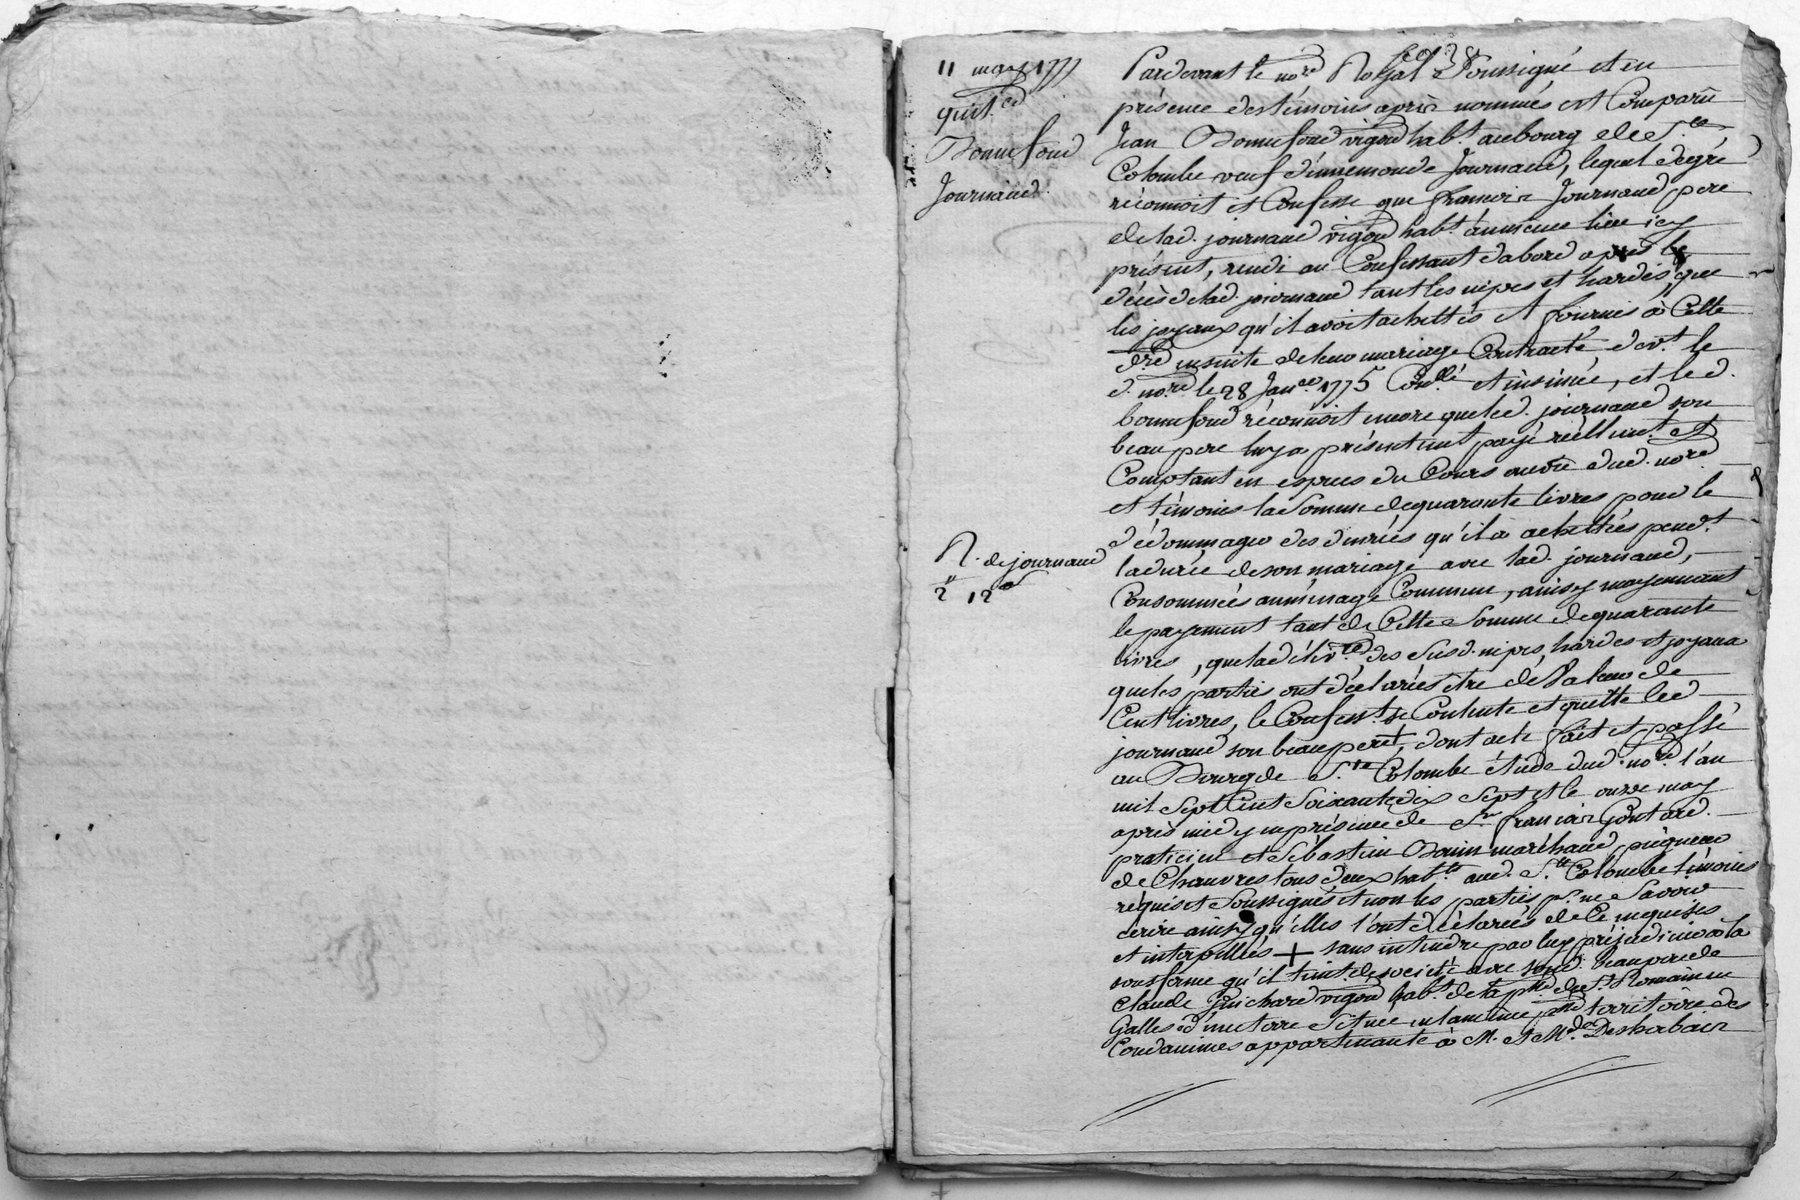 11 may 1777
quitce
Bonnefond
Journaud.
R. de journaud
2 12
Pardevant le nore Royal Soussigné et en
présence des témoins après nommés est Comparu
Jean Bonnefond vigon habt. au bourg de Ste.
Colombe veuf d'ennemonde Journaud, lequel de gré
réconnoit et Confesse que francois Journaud pere
de lad. journaud vigon habt. au meme lieu icy
présent, rendi au Confessant d'abord après le
décès de lad. journaud tant les nipes et hardes, que
les joyaux qu'il avoit achettés et fournis à Cette
dre ensuite de leur mariage Contracté devt. le
d. nore. le 28 Janer. 1775 Conllé et insinué, et led.
bonnefond réconnoit encore que led. journaud son
beau pere luy a présentement payé réellemt. et
Comptant en espèces du Cours au vu dud. nore
et témoins la Somme de quarante livres pour le
dédommager des denrées qu'il a achettées pendt.
la durée de son mariage avec lad. journaud,
Consommées au ménage Commun, ainsy moyennant
le payement tant de Cette Somme de quarante
livres, que la délivrce des susd. nipes, hardes et joyaux
que les parties ont déclarées être de Valeur de
Cent livres, le Confesst. se Contente et quitte led.
journaud son beaupere, dont acte fait et passé
au Bourg de Ste. Colombe étude dud. nore. l'an
mil Sept Cent Soixante dix Sept et le onze may
après midy en présence de Sr. francois Gontard.
praticien et Sébastien Bonin marchand peigneur
de Chanvres tous deux habts. aud. Ste. Colombe témoins
réquis et Soussignés et non les parties pr. ne Savoir
écrire ainsy qu'elles l'ont déclarées de Ce enquises
et interpellées + sans entendre par luy préjudicier à la
sousferme qu'il tient de société avec sond. beaupere de
Claude Guichard vigon habt. de la pss. de St. Romain en
Galles d'une terre Située en la même pss. territoire des
Condamines appartenante à M. et Mde. Desharbair